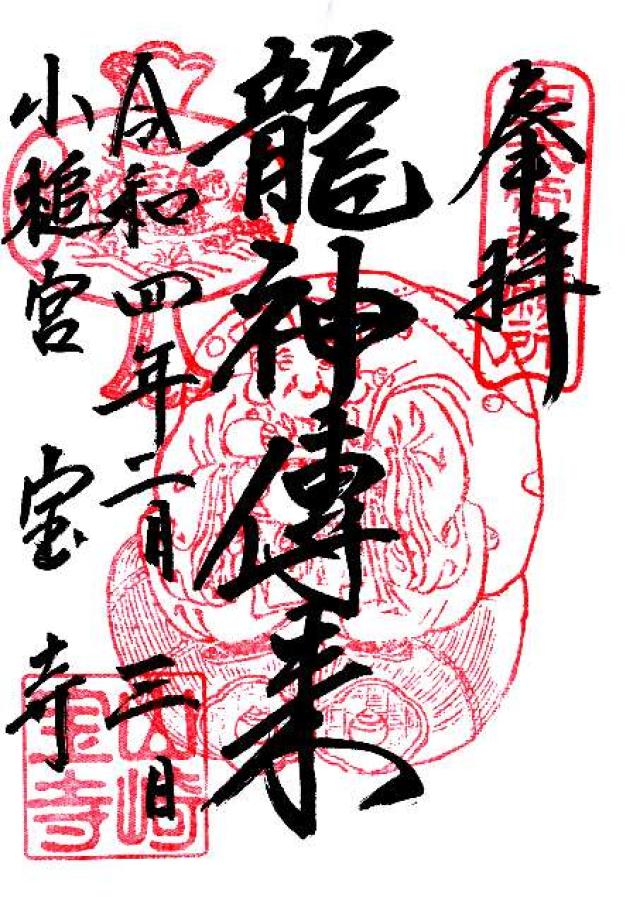 奉拝
龍神傳来
令和四年二月三日
小槌宮 宝寺
山崎
宝寺